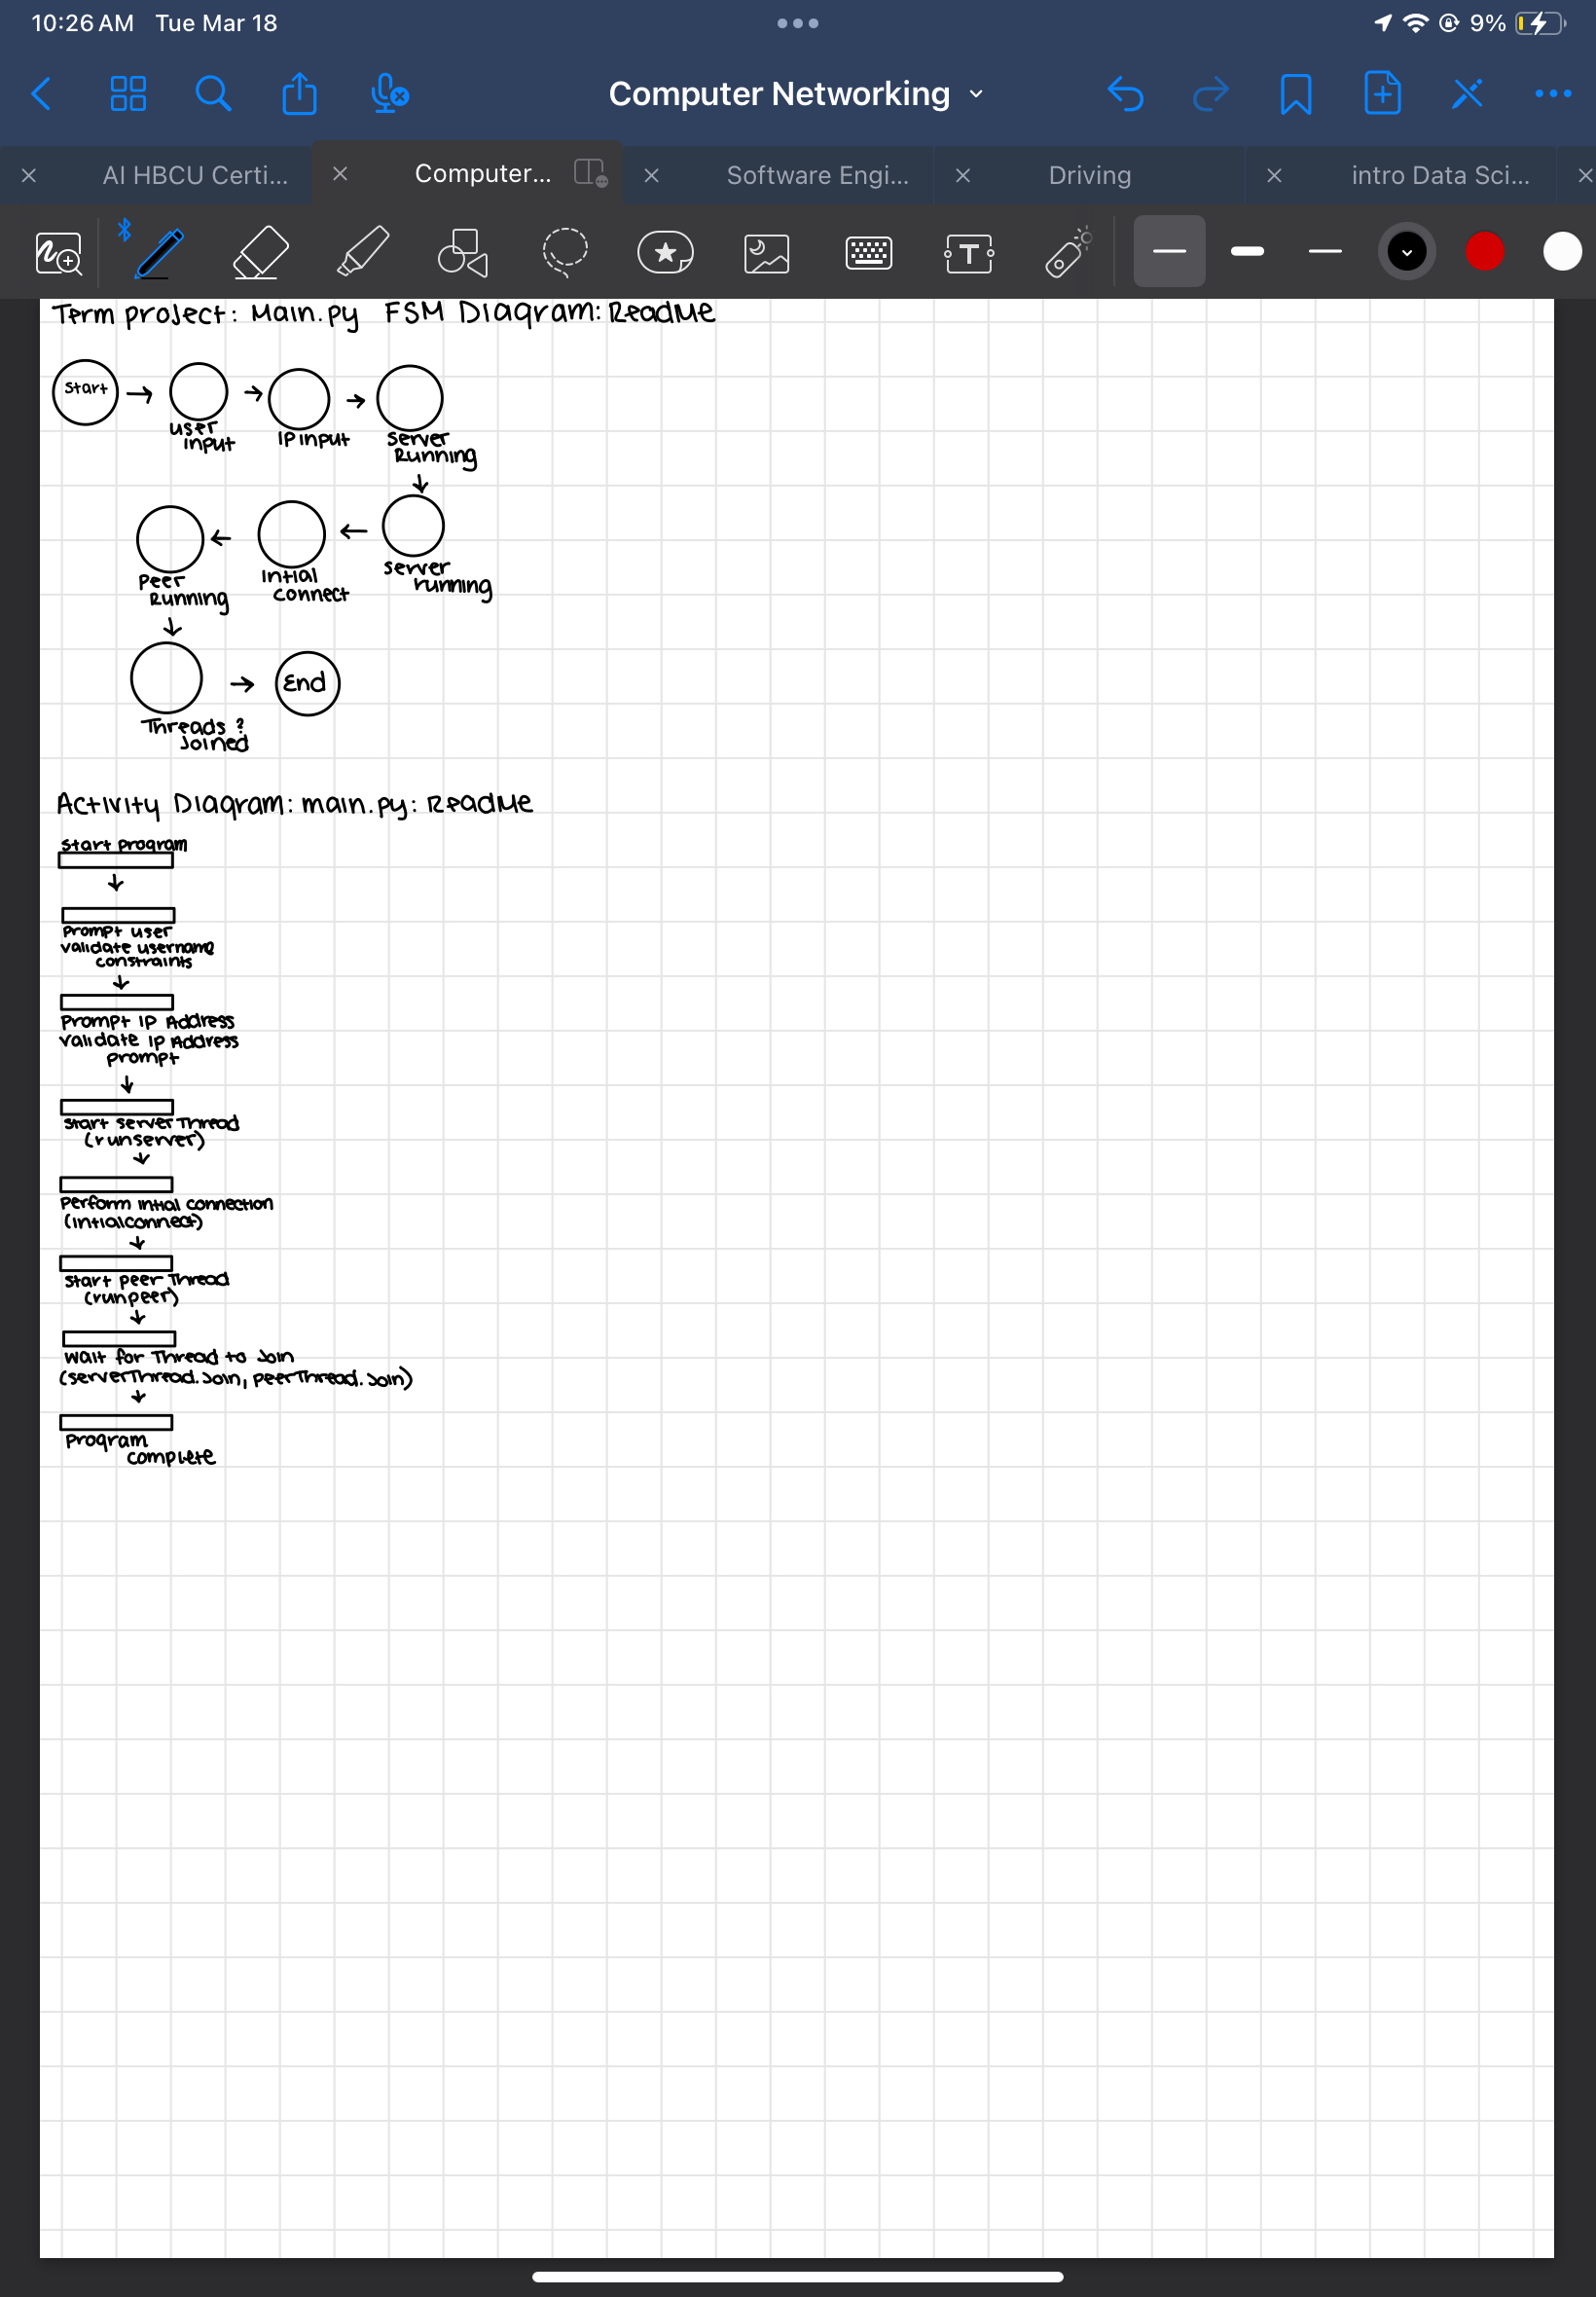 10:26 AM Tue Mar 18
9%
Computer Networking
AI HBCU Certi...
Computer...
Software Engi...
Driving
intro Data Sci...
T
Term project: Main.py FSM Diagram: ReadMe
start
user
input
IP input
server
Running
server
running
intial
connect
Peer
Running
Threads?
Joined
End
Activity Diagram: main.py: ReadMe
start program
prompt user
validate username
constraints
prompt IP Address
validate IP Address
prompt
start server Thread
(runserver)
perform intial connection
(intialconnect)
start peer Thread
(runpeer)
wait for Thread to Join
(serverThread.Join, peerThread.Join)
Program
complete